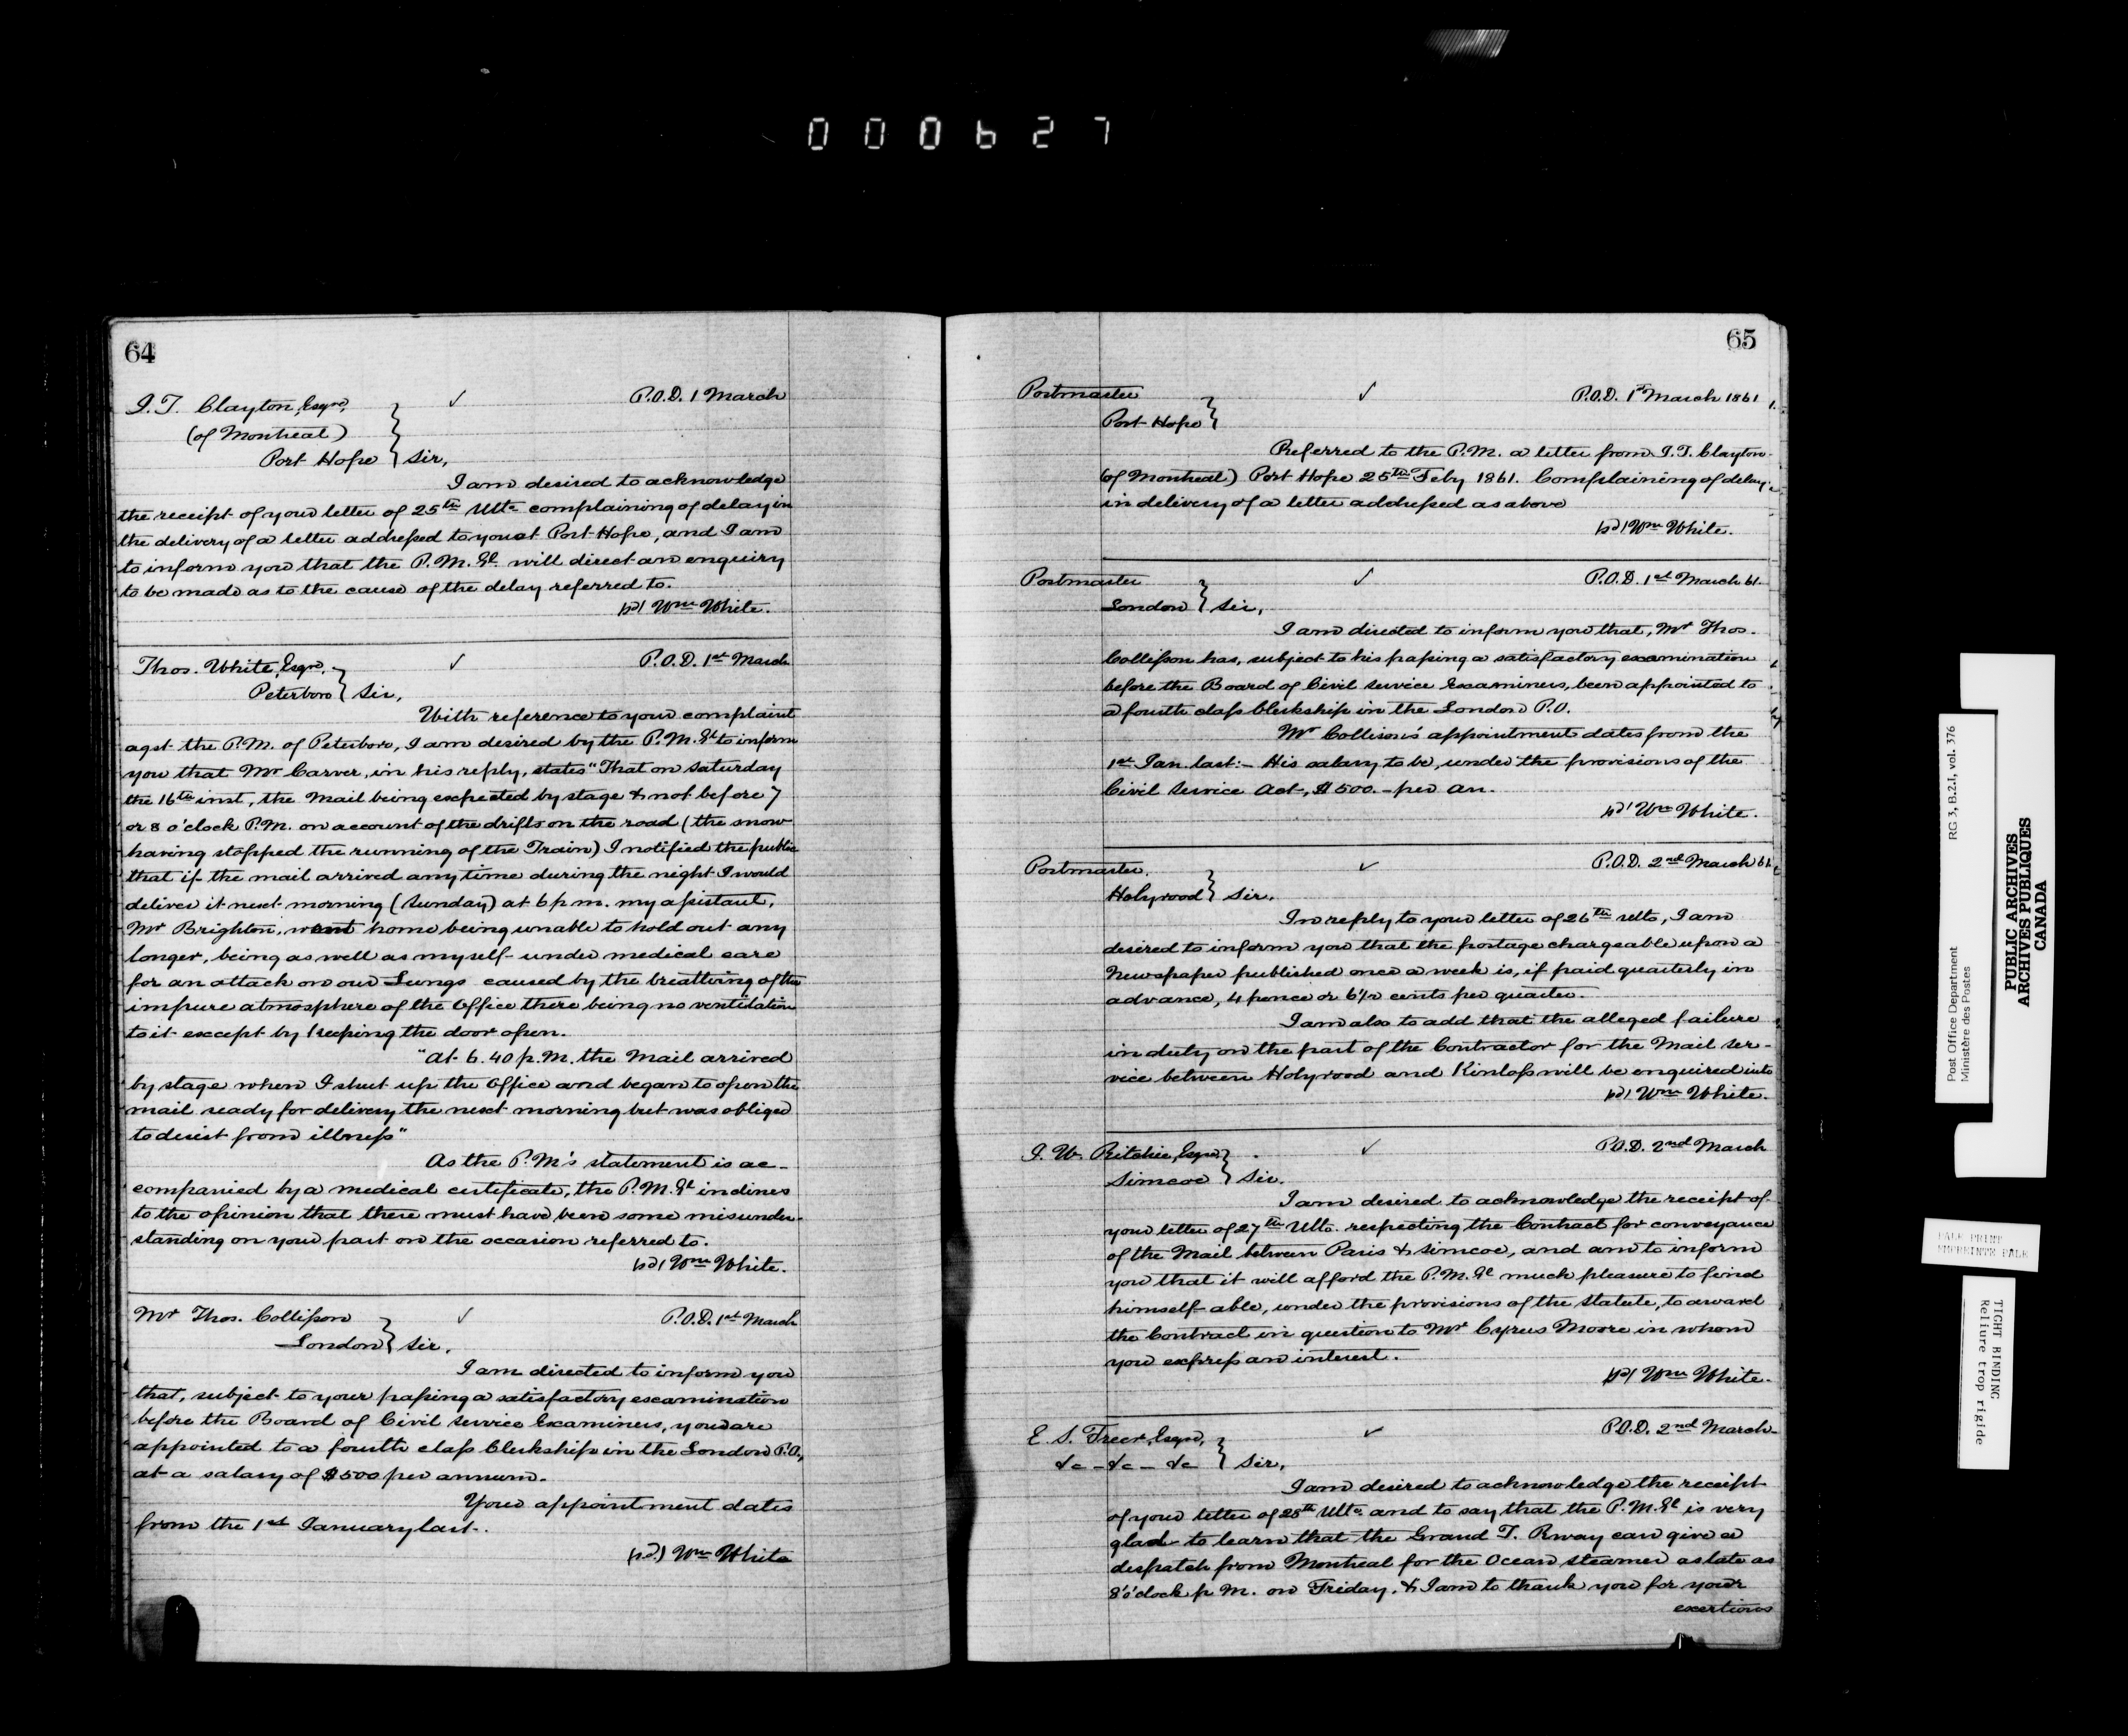 000627
64
I. T. Clayton, Esqre, ✓ P.O.D. 1 March
(of Montreal)
Port Hope } Sir,
I am desired to acknowledge
the receipt of your letter of 25th Ulto complaining of delay in
the delivery of a letter addressed to you at Port Hope, and I am
to inform you that the P.M. Gl will direct an enquiry
to be made as to the cause of the delay referred to.
(sd) Wm White.
Thos. White, Esqre, ✓ P.O.D. 1st March
Peterboro } Sir,
With reference to your complaint
agst the P.M. of Peterboro, I am desired by the P.M. Gl to inform
you that Mr Carver, in his reply, states "That on Saturday
the 16th inst, the Mail being expected by stage & not before 7
or 8 o'clock P.M. on account of the drifts on the road (the snow
having stopped the running of the Train) I notified the public
that if the mail arrived any time during the night I would
deliver it next morning (Sunday) at 6 p m. my assistant,
Mr Brighton, went home being unable to hold out any
longer, being as well as myself under medical care
for an attack on our Lungs caused by the breathing of the
impure atmosphere of the Office there being no ventilation
to it except by keeping the door open.
"At 6.40 p.M. the Mail arrived
by stage when I shut up the Office and began to open the
mail ready for delivery the next morning but was obliged
to desist from illness"
As the P.M's statement is ac-
companied by a medical certificate, the P.M. Gl inclines
to the opinion that there must have been some misunder-
standing on your part on the occasion referred to.
(sd) Wm White.
Mr Thos. Collisson ✓ P.O.D. 1st March
London } Sir,
I am directed to inform you
that, subject to your passing a satisfactory examination
before the Board of Civil Service Examiners, you are
appointed to a fourth class Clerkship in the London P.O.,
at a salary of $500 per annum.
Your appointment dates
from the 1st January last.
(sd.) Wm White
65
Postmaster ✓ P.O.D. 1st March 1861
Port Hope }
Referred to the P.M. a letter from I. T. Clayton
(of Montreal) Port Hope 25th Feby 1861. Complaining of delay
in delivery of a letter addressed as above
(sd) Wm White.
Postmaster ✓ P.O.D. 1st March 61
London } Sir,
I am directed to inform you that, Mr Thos.
Collisson has, subject to his passing a satisfactory examination
before the Board of Civil Service Examiners, been appointed to
a fourth class Clerkship in the London P.O.
Mr Collison's appointment dates from the
1st Jan. last:- His salary to be, under the provisions of the
Civil Service Act, $500.- per An.
(sd) Wm White.
Postmaster, ✓ P.O.D. 2nd March 61
Holyrood } Sir,
In reply to your letter of 26th Ulto, I am
desired to inform you that the postage chargeable upon a
Newspaper published once a week is, if paid quarterly in
advance, 4 pence or 6 1/2 cents per quarter.
I am also to add that the alleged failure
in duty on the part of the Contractor for the Mail ser-
vice between Holyrood and Kinloss will be enquired into
(sd) Wm White.
I. W. Ritchie, Esqre, ✓ P.O.D. 2nd March
Simcoe } Sir.
I am desired to acknowledge the receipt of
your letter of 27th Ulto. respecting the Contract for conveyance
of the Mail between Paris & Simcoe, and am to inform
you that it will afford the P.M. Gl much pleasure to find
himself able, under the provisions of the Statute, to award
the Contract in question to Mr Cyrus Moore in whom
you express an interest.
(sd) Wm White.
E. S. Freer, Esqre, ✓ P.O.D. 2nd March
&c - &c - &c } Sir,
I am desired to acknowledge the receipt
of your letter of 28th Ulto. and to say that the P.M. Gl is very
glad to learn that the Grand T. Rway can give a
despatch from Montreal for the Ocean steamer as late as
8 o'clock p M. on Friday, & I am to thank you for your
exertions
Post Office Department RG 3, B.2.I, vol. 376
Ministère des Postes
PUBLIC ARCHIVES
ARCHIVES PUBLIQUES
CANADA
PALE PRINT
EMPREINTE PALE
TIGHT BINDING
Reliure trop rigide